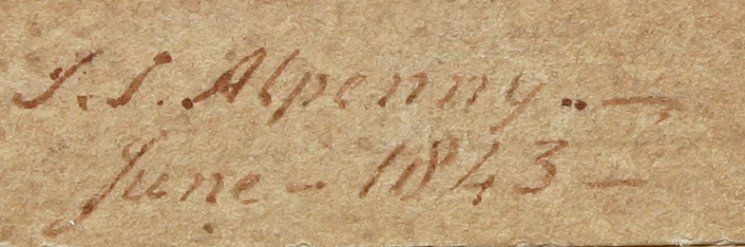 J. S. Alpenny. —
June – 1843 —